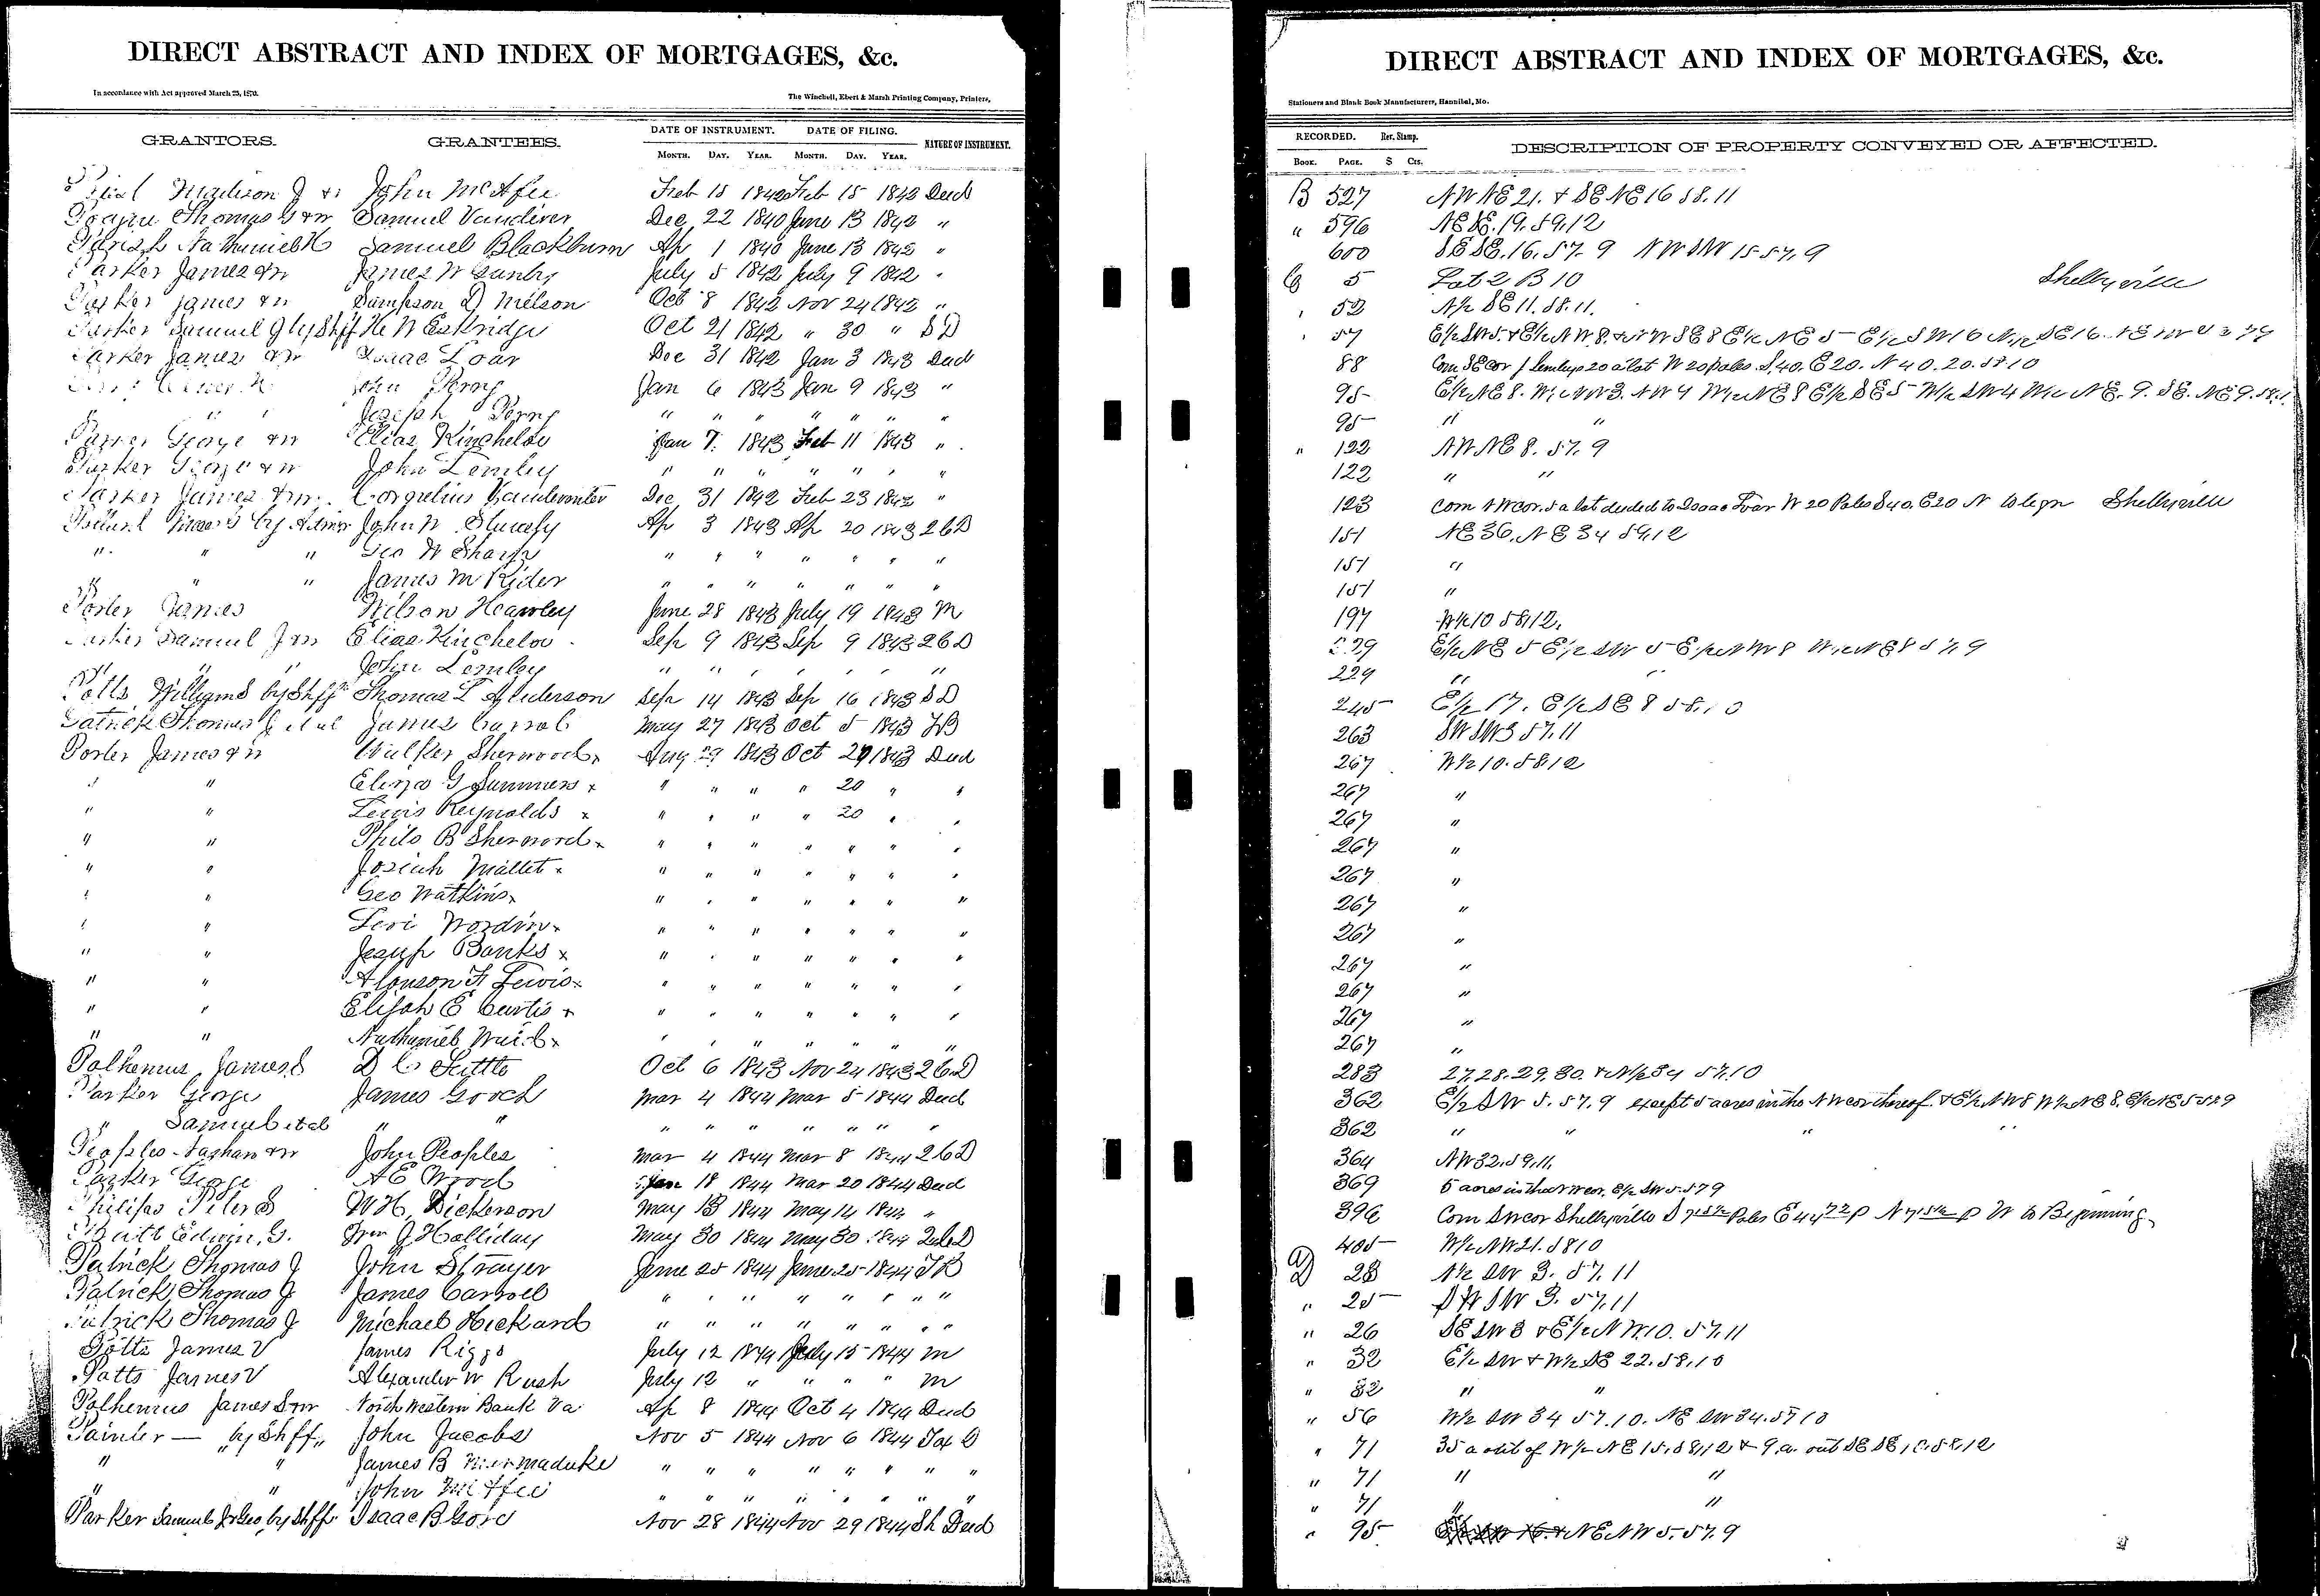 DIRECT ABSTRACT AND INDEX OF MORTGAGES, &c.
In accordance with Act approved March 25, 1870.
The Winchell, Ebert & Marsh Printing Company, Printers,
GRANTORS. GRANTEES. DATE OF INSTRUMENT. DATE OF FILING. NATURE OF INSTRUMENT.
MONTH. DAY. YEAR. MONTH. DAY. YEAR.
Madison J John McAfee Feb 15 1842 Feb 15 1842 Deed
Thomas G & w Samuel Vandiver Dec 22 1840 June 13 1842 "
Parish Nathaniel H Samuel Blackburn Ap 1 1840 June 13 1842 "
Parker James & w James W Gunby July 5 1842 July 9 1842 "
Parker James & w Dampson D Nelson Oct 8 1842 Nov 24 1842 "
Parker Samuel J by Shff H N Eskridge Oct 21 1842 " 30 " S D
Parker James & w Isaac Loar Dec 31 1842 Jan 3 1843 Deed
John Perry Jan 6 1843 Jan 9 1843 "
" " Joseph Perry " " " " " " "
Parker George & w Elias Kincheloe Jan 7 1843 Feb 11 1843 "
Parker George & w John Lemley " " " " " " "
Parker James & w Cornelius Vandeventer Dec 31 1842 Feb 23 1843 "
by Admr John N Ap 3 1843 Ap 20 1843 2 C D
" " " Geo W Sharp " " " " " " "
" " " James M Rider " " " " " " "
Porter James Nelson Hawley June 28 1843 July 19 1843 M
Parker Samuel J & w Elias Kincheloe Sep 9 1843 Sep 9 1843 2 C D
" " " John Lemley " " " " " " "
Potts William S by Shff Thomas L Anderson Sep 14 1843 Sep 16 1843 S D
Patrick Thomas J et al James Carrol May 27 1843 Oct 5 1843 T B
Porter James & w Walker Sherwood x Aug 29 1843 Oct 20 1843 Deed
" " Eliza G Summers x " " " " 20 " "
" " Lewis Reynolds x " " " " 20 " "
" " Philo B Sherwood x " " " " " " "
" " Josiah Mallet x " " " " " " "
" " Geo Watkins x " " " " " " "
" " Levi Wordin x " " " " " " "
" " Jesup Banks x " " " " " " "
" " Alonson F Lewis x " " " " " " "
" " Elijah E Curtis x " " " " " " "
" " Nathaniel x " " " " " " "
Polhemus James S D C Settle Oct 6 1843 Nov 24 1843 2 C D
Parker George James Gooch Mar 4 1844 Mar 5 1844 Deed
" Samuel et al " " " " " " " " "
Peoples Nathan & w John Peoples Mar 4 1844 Mar 8 1844 2 C D
Parker George A E Wood Jan 18 1844 Mar 20 1844 Deed
Philips Peter S W H Dickerson May 13 1844 May 14 1844 "
Edwin G. Wm J Halliday May 30 1844 May 30 1844 2 C D
Patrick Thomas J John Strayer June 25 1844 June 25 1844 T B
Patrick Thomas J James Carroll " " " " " " " "
Patrick Thomas J Michael Hickard " " " " " " " "
Potts James V James Riggs July 12 1844 July 15 1844 M
Potts James V Alexander W Rush July 12 " " " " M
Polhemus James S & w North Western Bank Va Ap 8 1844 Oct 4 1844 Deed
Painter — by Shff John Jacobs Nov 5 1844 Nov 6 1844 Tax D
" " James B Marmaduke " " " " " " " "
" " John McAfee " " " " " " " "
Parker Samuel J & Geo by Shff Isaac B Nov 28 1844 Nov 29 1844 Sh Deed
DIRECT ABSTRACT AND INDEX OF MORTGAGES, &c.
Stationers and Blank Book Manufacturers, Hannibal, Mo.
RECORDED. Rev. Stamp. DESCRIPTION OF PROPERTY CONVEYED OR AFFECTED.
BOOK. PAGE. $ Cts.
B 527 NW NE 21. & SE NE 16 58.11
" 596 NE SE. 19. 59.12
600 SE SE. 16. 57. 9 NW SW 15 57. 9
C 5 Lot 2 B 10 Shelbyville
" 52 N/2 SE 11. 58. 11.
" 57 E/2 SW 5. & E/2 NW 8. & W SE 8 E/2 NE 5 E/2 SW 16 N/2 SE 16.
88 Com SE Cor J Lemleys 20 a lot W 20 poles. S. 40. E 20. N 40. 20. 57 10
95 E/2 NE 8. NW 3. NW 4 NE 8 E/2 SE 5 W/2 SW 4 NE. 9. SE. NE 9. 58.
95 " "
" 122 NW NE 8. 57. 9
122 " "
123 Com NW cor. 5 a lot deeded to Isaac Loar W 20 Poles S 40. E 20 N to begn Shelbyville
151 NE 36. NE 34 59.12
151 "
151 "
197 W/2 10 58.12.
229 E/2 NE 5 E/2 SW 5 E/2 NW 8 W/2 NE 8 57. 9
229 "
245 E/2 17. E/2 SE 8 58. 10
263 SW SW 3 57. 11
267 W/2 10. 58 12
267 "
267 "
267 "
267 "
267 "
267 "
267 "
267 "
267 "
267 "
283 27. 28. 29. 30. & N/2 34 57. 10
362 E/2 SW 5. 57. 9 except 5 acres in the NW cor thereof. & E/2 NW 8 W/2 NE 8. E/2 NE 5 57 9
362 " " " "
364 NW 32. 59. 11.
369 5 acres in the NW cor. E/2 SW 5. 57 9
396 Com SW cor Shelbyville S Poles E N P W to Beginning
405 W/2 NW 21. 58 10
D 23 N/2 SW 3. 57. 11
" 25 SW SW 3. 57. 11
" 26 SE SW 3 & E/2 NW 10. 57. 11
" 32 E/2 SW & W/2 SE 22. 58. 10
" 32 " "
" 56 W/2 SW 34 57. 10. NE SW 34. 57 10
" 71 35 a out of W/2 NE 15. 58. 12 & 9 a. out SE SE 10. 58. 12
" 71 " "
" 71 " "
" 95 NE NW 5. 57. 9